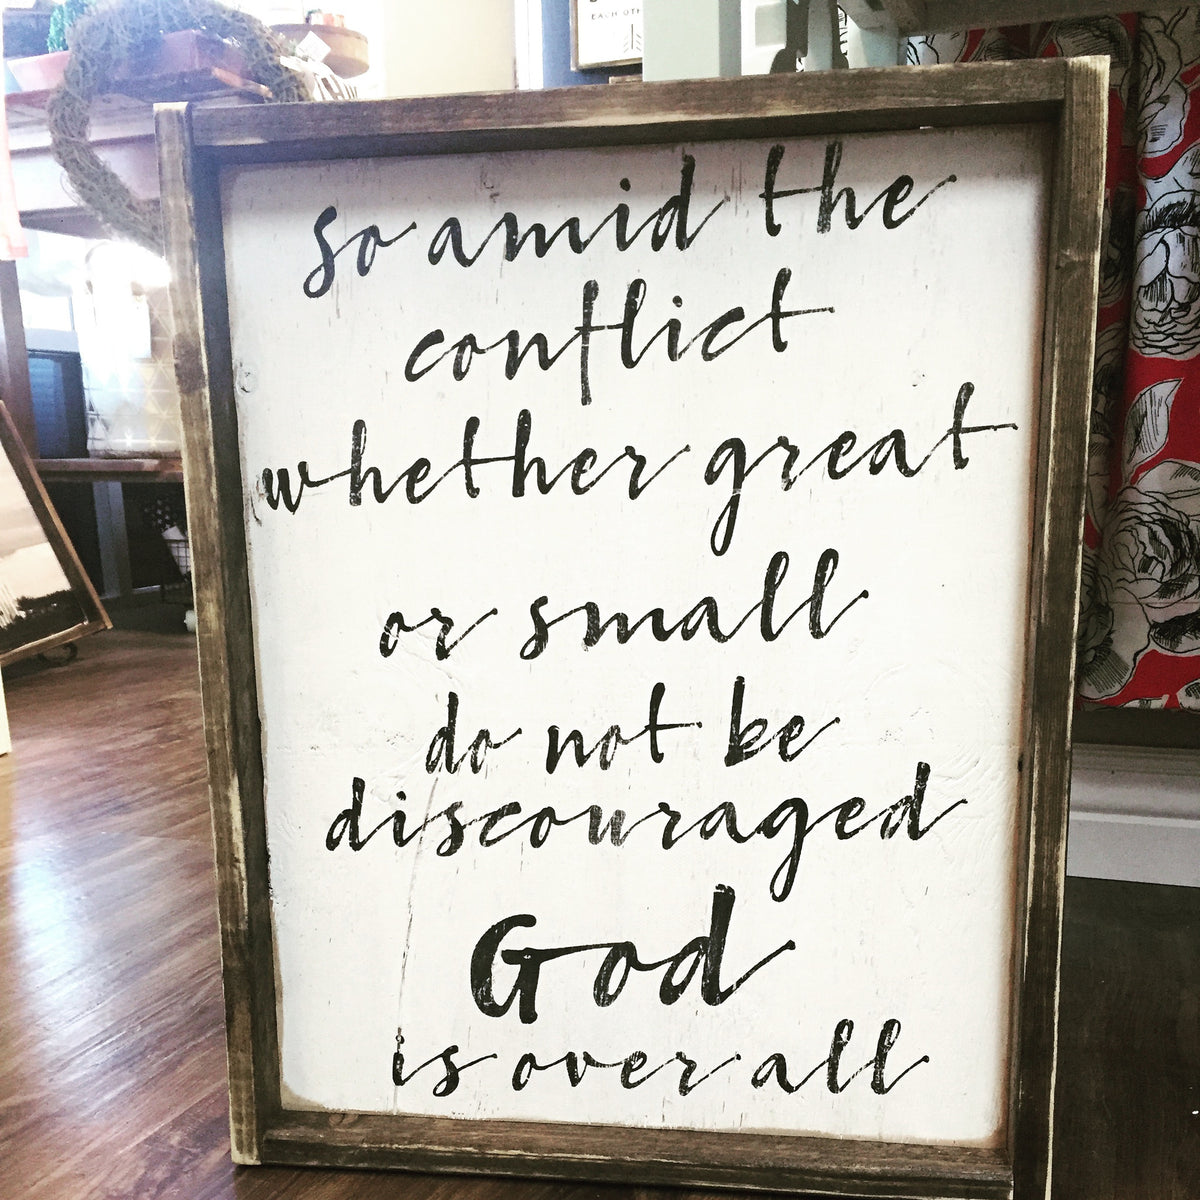 EACH OTH
so amid the
conflict
whether great
or small
do not be
discouraged
God
is over all